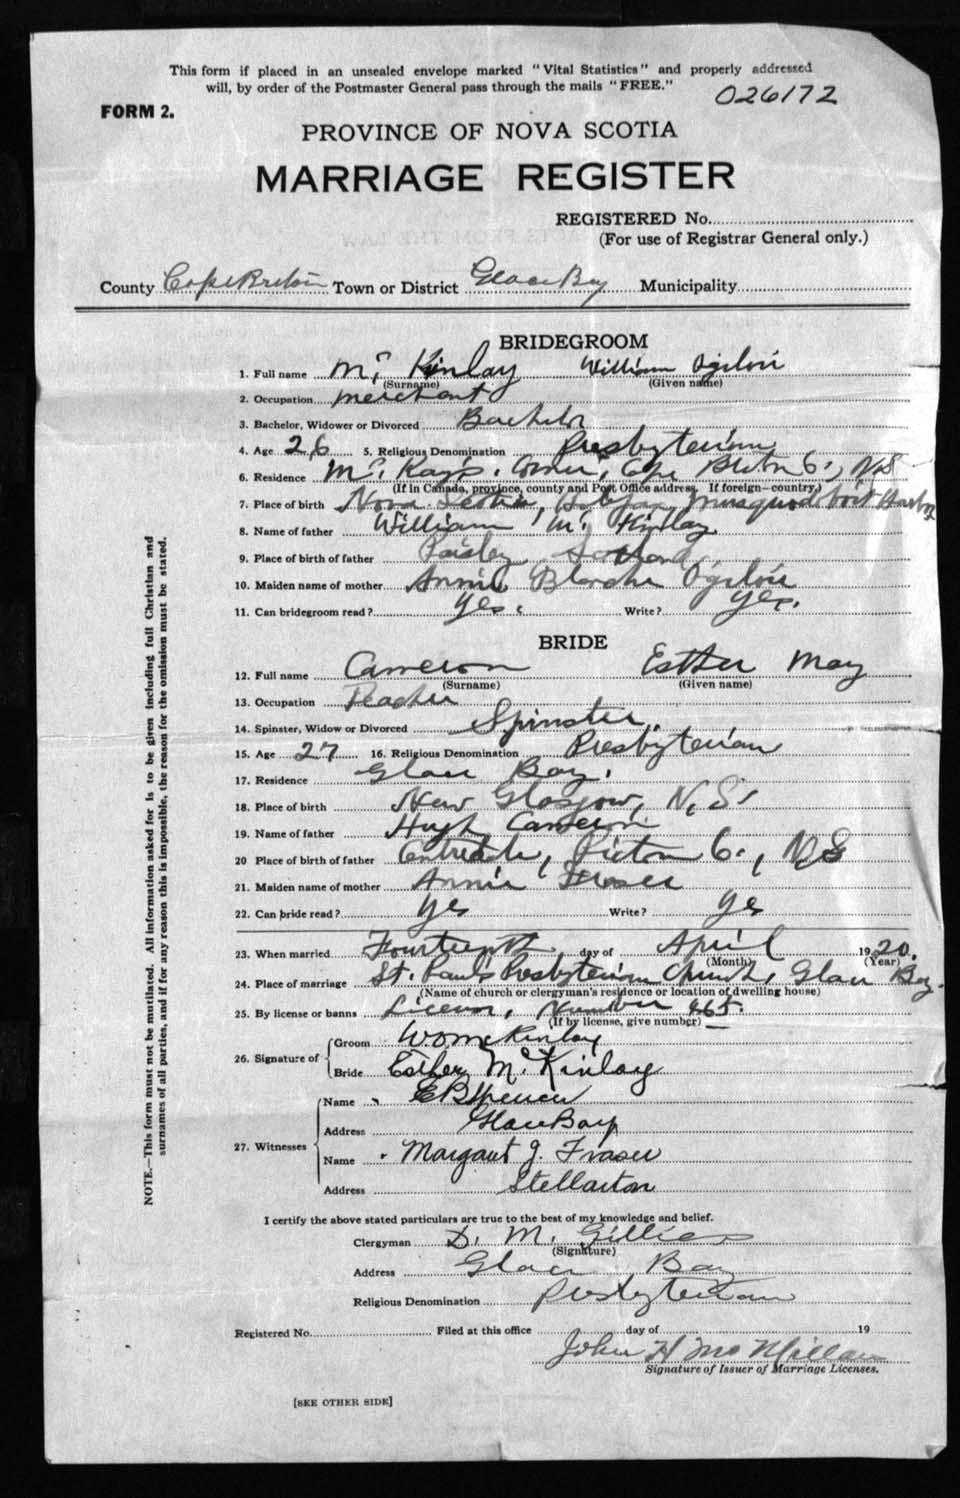 This form if placed in an unsealed envelope marked "Vital Statistics" and properly addressed
will, by order of the Postmaster General pass through the mails "FREE."
026172
FORM 2.
PROVINCE OF NOVA SCOTIA
MARRIAGE REGISTER
REGISTERED No.
(For use of Registrar General only.)
County Cape Breton Town or District Glace Bay Municipality
BRIDEGROOM
1. Full name Mc Kinlay William Ogilvie
(Surname) (Given name)
2. Occupation merchant
3. Bachelor, Widower or Divorced Bachelor
4. Age 26 5. Religious Denomination Presbyterian
6. Residence Mc Kay's Corner, Cape Breton Co., N.S
(If in Canada, province, county and Post Office address. If foreign—country.)
7. Place of birth Nova Scotia, Halifax, Musquodoboit Harbor
8. Name of father William Mc Kinlay
9. Place of birth of father Paisley Scotland
10. Maiden name of mother Annie Blanche Ogilvie
11. Can bridegroom read? Yes. Write? Yes.
BRIDE
12. Full name Cameron Esther May
(Surname) (Given name)
13. Occupation Teacher
14. Spinster, Widow or Divorced Spinster.
15. Age 27 16. Religious Denomination Presbyterian
17. Residence Glace Bay.
18. Place of birth New Glasgow, N.S.
19. Name of father Hugh Cameron
20 Place of birth of father Pictou Co., N.S
21. Maiden name of mother Annie Fraser
22. Can bride read? Yes Write? Yes
23. When married Fourteenth day of April 1920.
(Month) (Year)
24. Place of marriage St. Paul's Presbyterian Church, Glace Bay.
(Name of church or clergyman's residence or location of dwelling house)
25. By license or banns License, Number 465.
(If by license, give number)
26. Signature of
Groom W O McKinlay
Bride Esther Mc Kinlay
27. Witnesses
Name E B Spencer
Address Glace Bay
Name Margaret J. Fraser
Address Stellarton
I certify the above stated particulars are true to the best of my knowledge and belief.
Clergyman D. M. Gillies
(Signature)
Address Glace Bay
Religious Denomination Presbyterian
Registered No. Filed at this office day of 19
John H McMillan
Signature of Issuer of Marriage Licenses.
[SEE OTHER SIDE]
NOTE.—This form must not be mutilated. All information asked for is to be given including full Christian and
surnames of all parties, and if for any reason this is impossible, the reason for the omission must be stated.